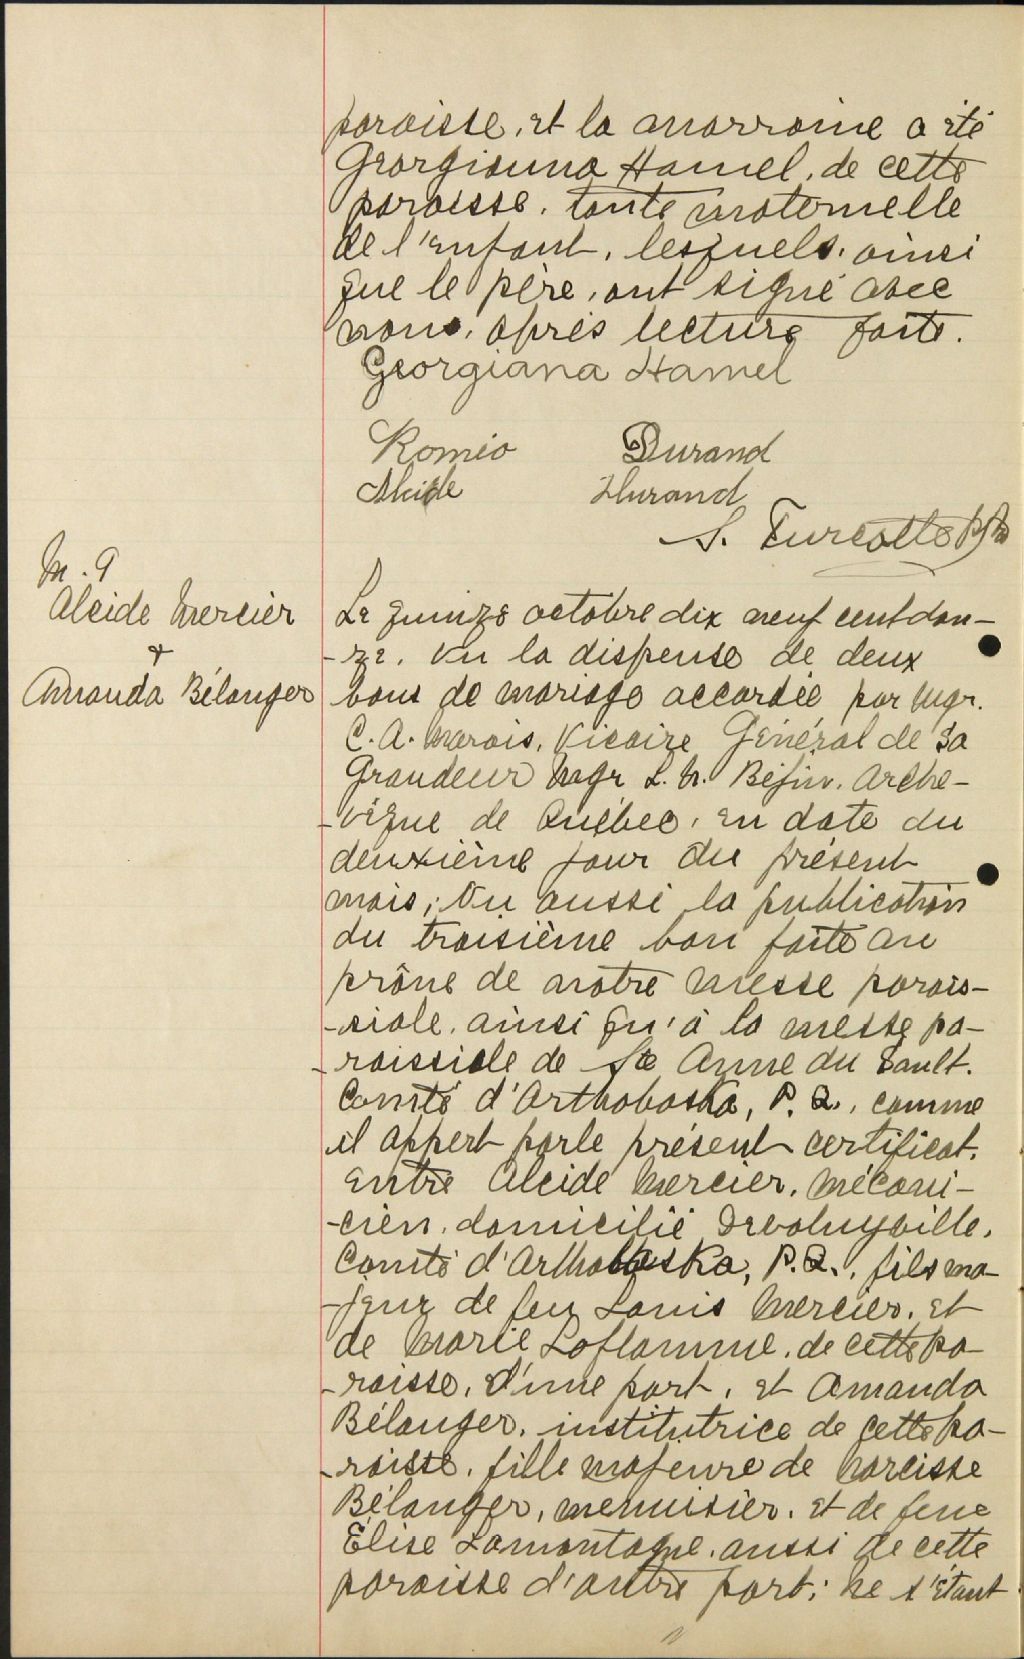 paroisse, et la marraine a été
Georgianna Hamel, de cette
paroisse, tante maternelle
de l'enfant, lesquels, ainsi
que le père, ont signé avec
nous, après lecture faite.
Georgiana Hamel
Roméo Durand
Alcide Durand
S. Turcotte Ptre
M. 9
Alcide Mercier
+
Amanda Bélanger
Le quinze octobre dix neuf cent dou-
-ze, vu la dispense de deux
bans de mariage accordée par Mgr.
C. A. Marois, Vicaire Général de Sa
Grandeur Mgr L. N. Bégin, Arche-
-vêque de Québec, en date du
deuxième jour du présent
mois; Vu aussi la publication
du troisième ban faite au
prône de notre messe parois-
-siale, ainsi qu'à la messe pa-
-roissiale de Ste Anne du Sault,
Comté d'Arthabaska, P. Q., comme
il appert par le présent certificat,
entre Alcide Mercier, mécani-
-cien, domicilié Daveluyville,
Comté d'Arthabaska, P. Q., fils ma-
-jeur de feu Louis Mercier, et
de Marie Laflamme, de cette pa-
-roisse, d'une part, et Amanda
Bélanger, institutrice de cette pa-
-roisse, fille majeure de Narcisse
Bélanger, menuisier, et de feue
Élise Lamontagne, aussi de cette
paroisse d'autre part; ne s'étant